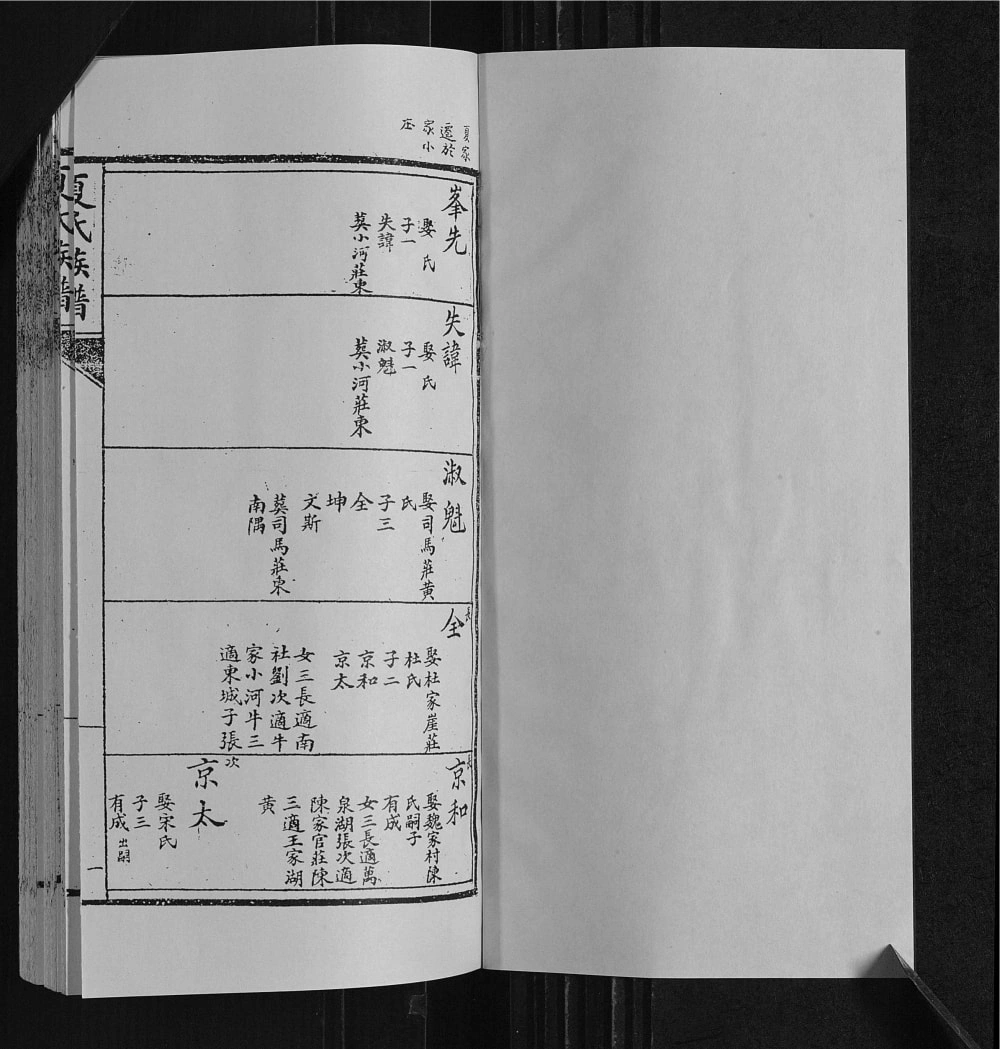 夏家
遷於
家小
庄
峯先
娶 氏
子一
失諱
葬小河莊東
失諱
娶 氏
子一
淑魁
葬小河莊東
淑魁
娶司馬莊黄
氏
子三
全
坤
文斯
葬司馬莊東
南隅
長
全
娶杜家崖莊
杜氏
子二
京和
京太
女三長適南
社劉次適牛
家小河牛三
適東城子張
長
京和
娶魏家村陳
氏嗣子
有成
女三長適萬
泉湖張次適
陳家官莊陳
三適王家湖
黄
次
京太
娶宋氏
子三
有成 出嗣
夏氏族譜
一